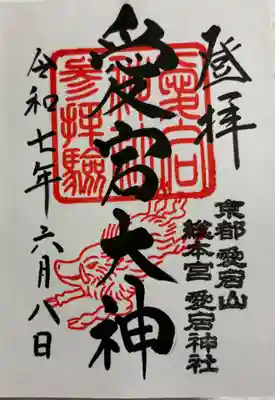 登拝
京都 愛宕山
総本宮 愛宕神社
愛宕大神
愛宕
参拝驗
令和七年六月八日